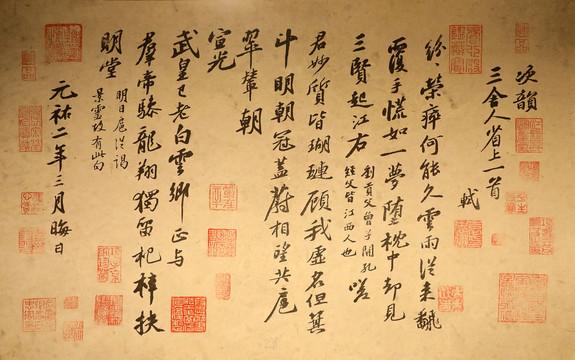 次韻
三舍人省上一首
軾
紛〻榮瘁何能久雲雨從来翻
覆手慌如一夢墮枕中却見
三賢起江右
劉貢父曾子開孔
經父皆江西人也
嗟
君妙質皆瑚璉顧我虛名但箕
斗明朝冠蓋蔚相望共扈
翠輦朝
宣光
武皇已老白雲鄉正与
羣帝驂龍翔獨留杞梓扶
明堂
明日扈從謁
景靈故有此句
元祐二年三月晦日